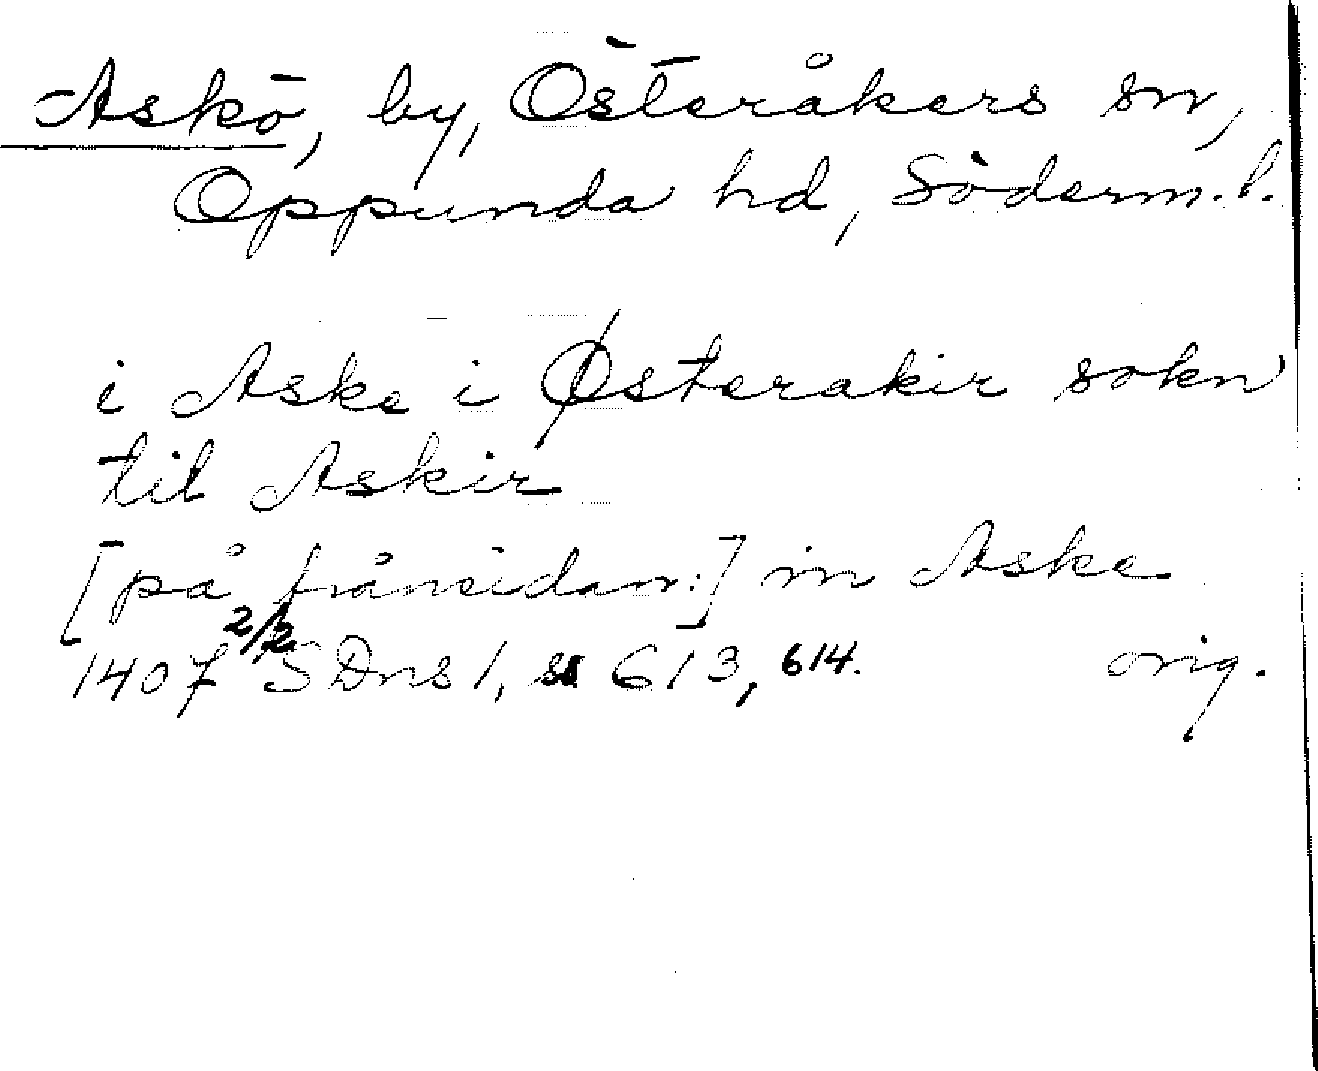 Askö, by, Österåkers sn,
Oppunda hd, Söderm. l.
i Aske i Østerakir sokn
til Askir
[på frånsidan:] in Aske
1407 2/2 SDns 1, s 613, 614. orig.